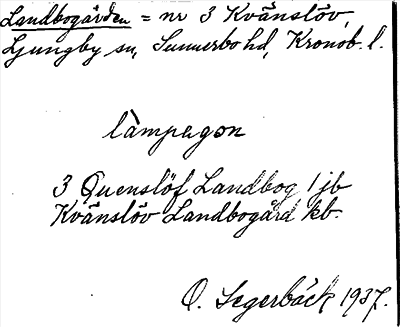 Landbogården = nr 3 Kvänslöv,
Ljungby sn, Sunnerbo hd, Kronob. l.
làmpagon
3 Quenslöf Landbog 1 jb
Kvänslöv Landbogård kb.
O. Segerbäck 1937.